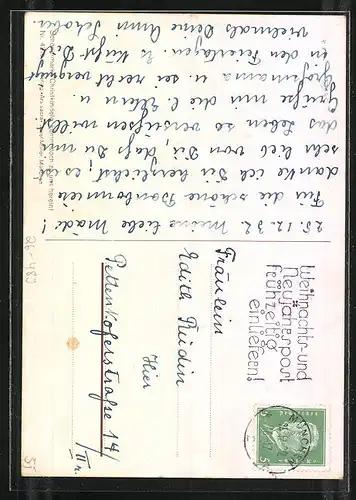 25.12.32. Meine liebe Mädi!
Für die schöne Bonboniere
danke ich Dir herzlichst; es ist
sehr lieb von Dir, daß Du mir
das Leben so versüßen willst.
Grüße mir die l. Eltern u.
Großmama u. sei recht vergnügt
in den Feiertagen. Es küßt Dich
vielmals Deine Anni
Weihnachts- und
Neujahrspost
frühzeitig
einliefern!
MÜNCHEN
5
5
Fräulein
Edith Rüdin
Hier
Pettenkoferstraße 14/
/II r.
26-480